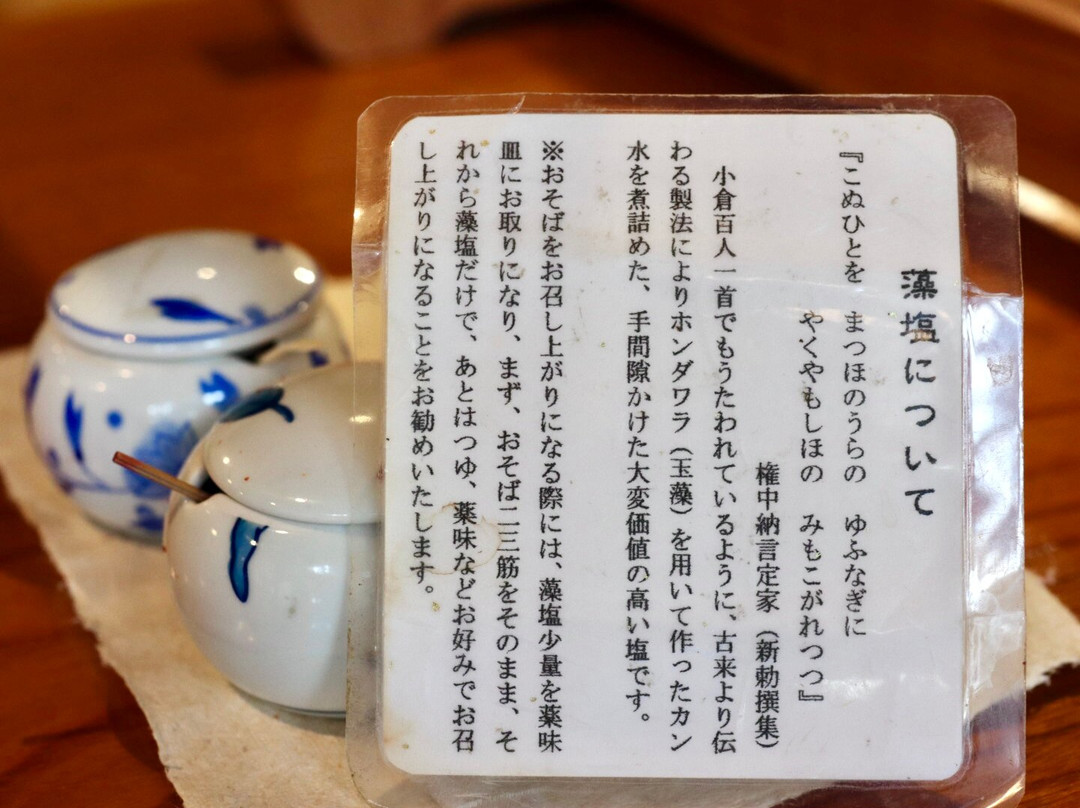 藻塩について
『こぬひとを　まつほのうらの　ゆふなぎに
やくやもしほの　みもこがれつつ』
権中納言定家（新勅撰集）
小倉百人一首でもうたわれているように、古来より伝
わる製法によりホンダワラ（玉藻）を用いて作ったカン
水を煮詰めた、手間隙かけた大変価値の高い塩です。
※おそばをお召し上がりになる際には、藻塩少量を薬味
皿にお取りになり、まず、おそば二三筋をそのまま、そ
れから藻塩だけで、あとはつゆ、薬味などお好みでお召
し上がりになることをお勧めいたします。